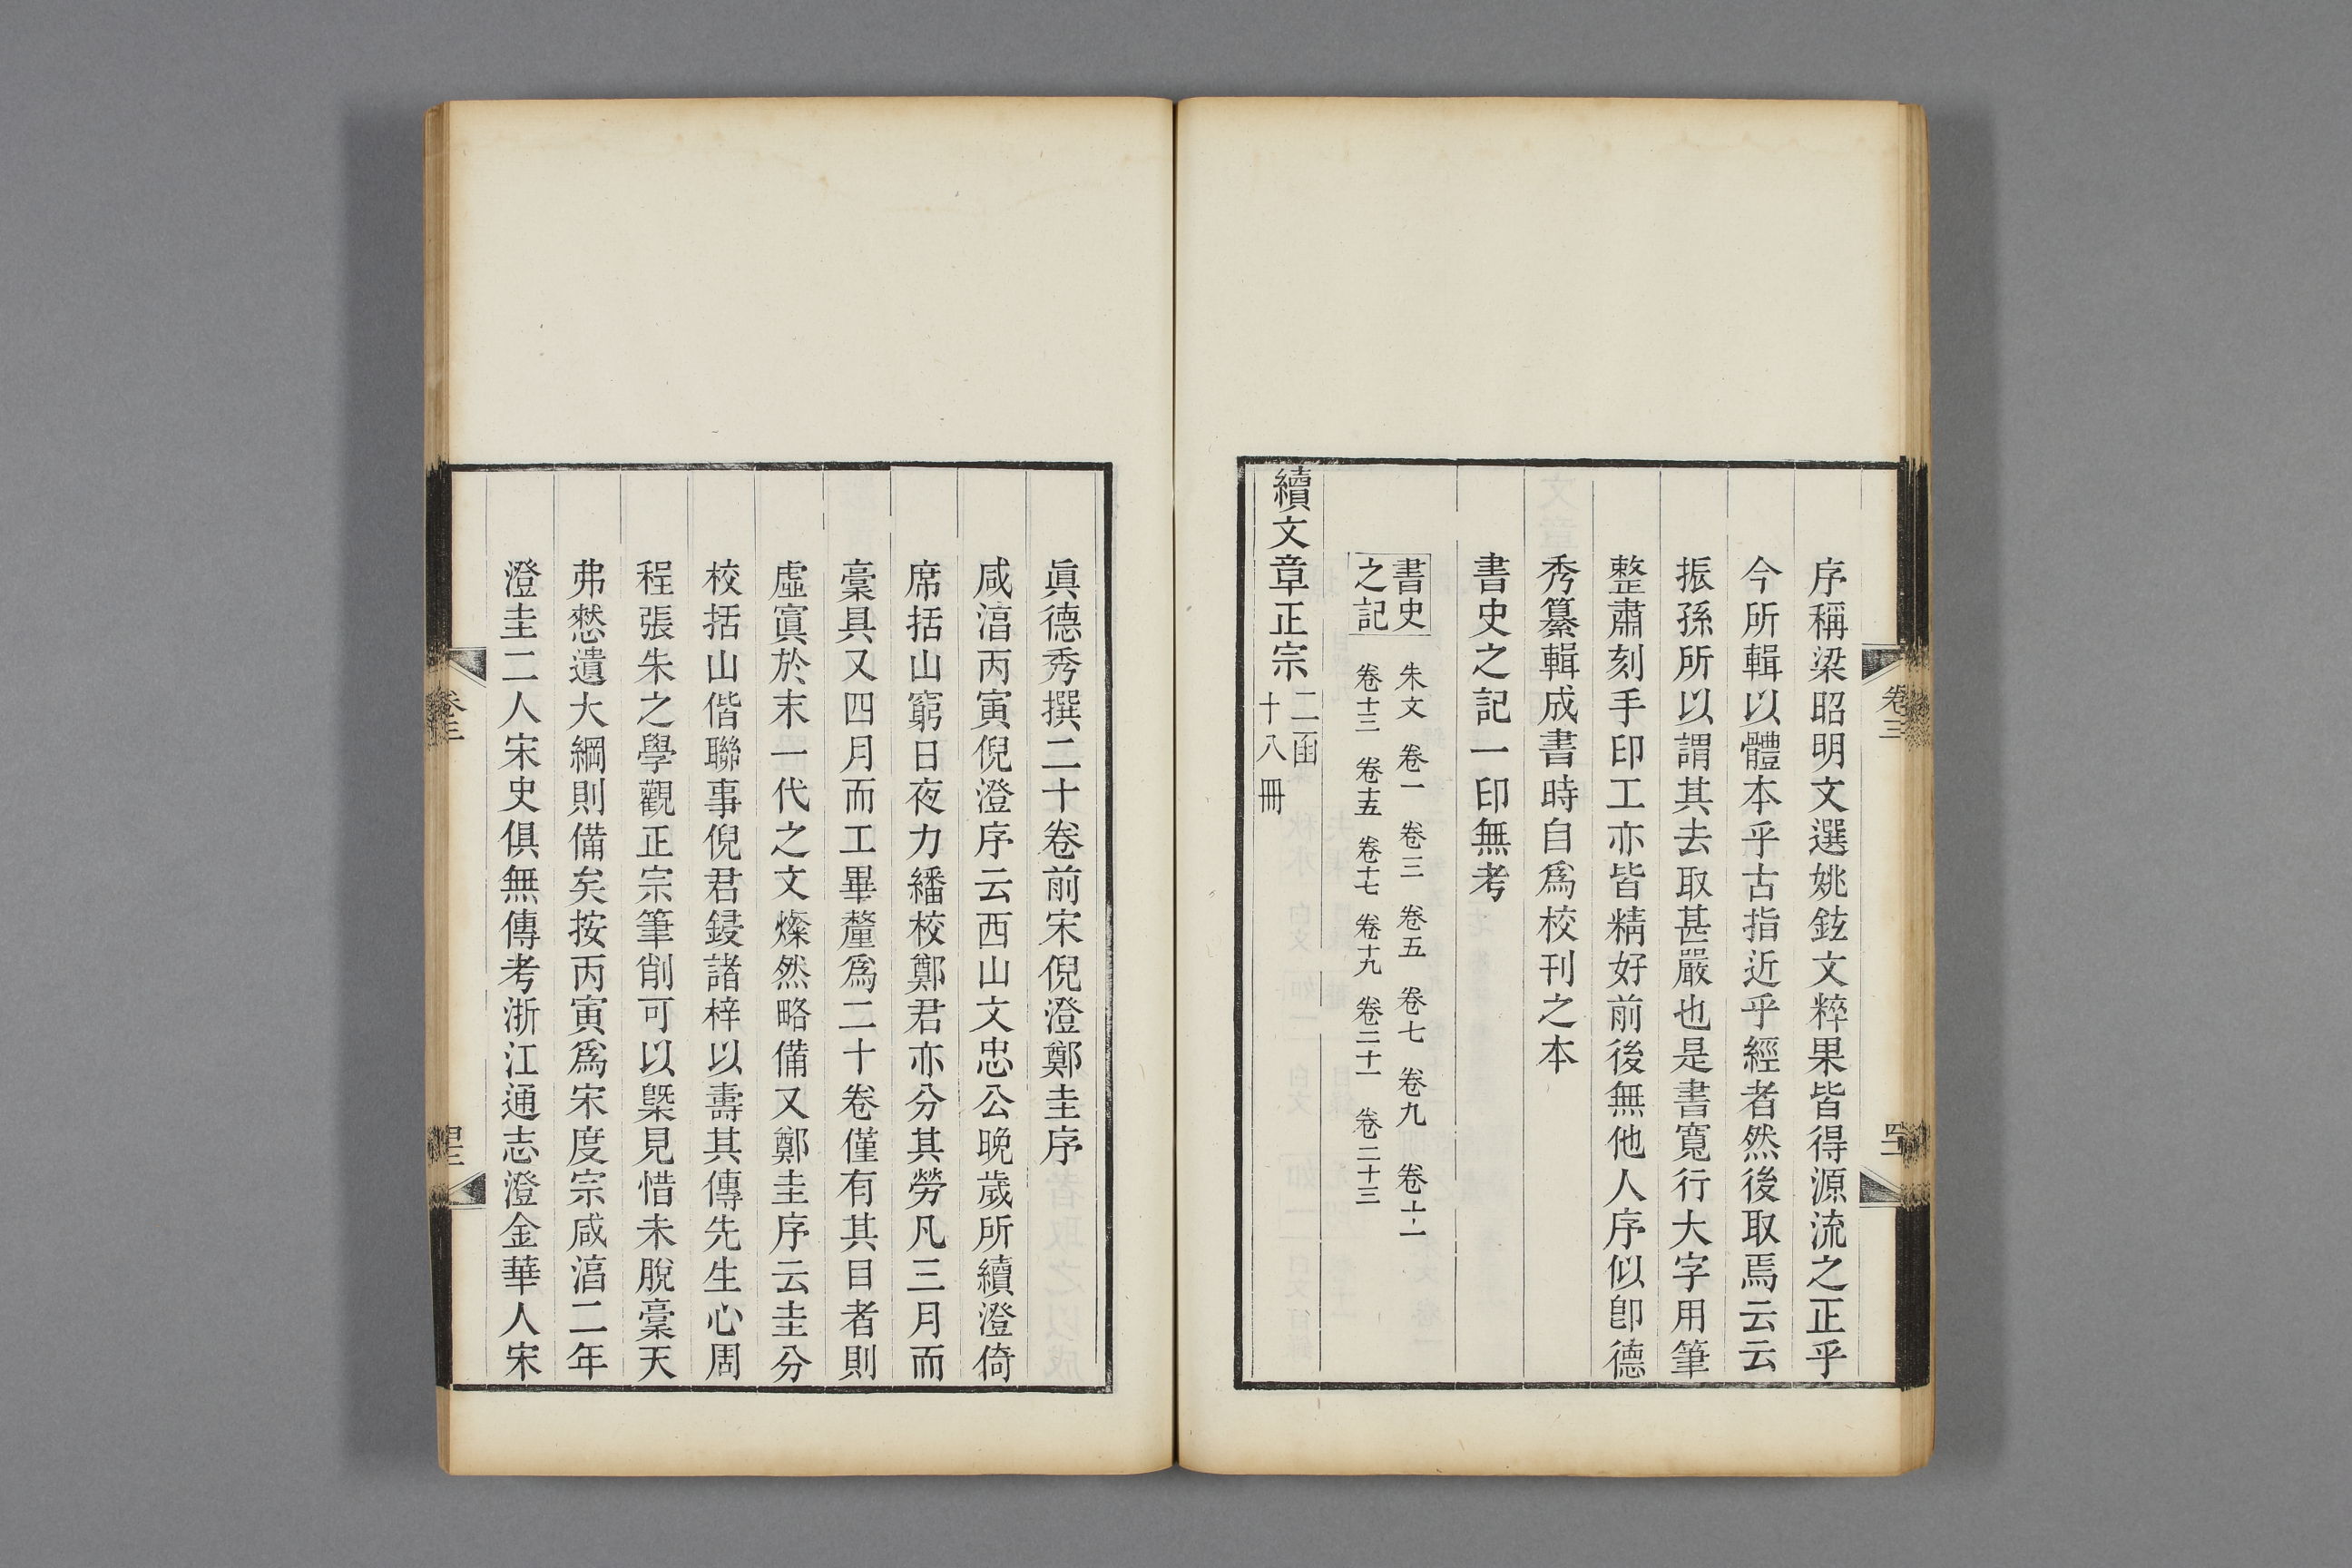 序稱梁昭明文選姚鉉文粹果皆得源流之正乎
今所輯以體本乎古指近乎經者然後取焉云云
振孫所以謂其去取甚嚴也是書寬行大字用筆
整肅刻手印工亦皆精好前後無他人序似卽德
秀纂輯成書時自爲校刊之本
書史之記一印無考
書史
之記
朱文 卷一 卷三 卷五 卷七 卷九 卷十一
卷十三 卷十五 卷十七 卷十九 卷二十一 卷二十三
續文章正宗
二函
十八冊
眞德秀撰二十卷前宋倪澄鄭圭序
咸湻丙寅倪澄序云西山文忠公晚歲所續澄倚
席括山窮日夜力繙校鄭君亦分其勞凡三月而
稾具又四月而工畢釐爲二十卷僅有其目者則
虛寘於末一代之文燦然略備又鄭圭序云圭分
校括山偕聯事倪君鋟諸梓以壽其傳先生心周
程張朱之學觀正宗筆削可以槩見惜未脫稾天
弗憗遺大綱則備矣按丙寅爲宋度宗咸湻二年
澄圭二人宋史俱無傳考浙江通志澄金華人宋